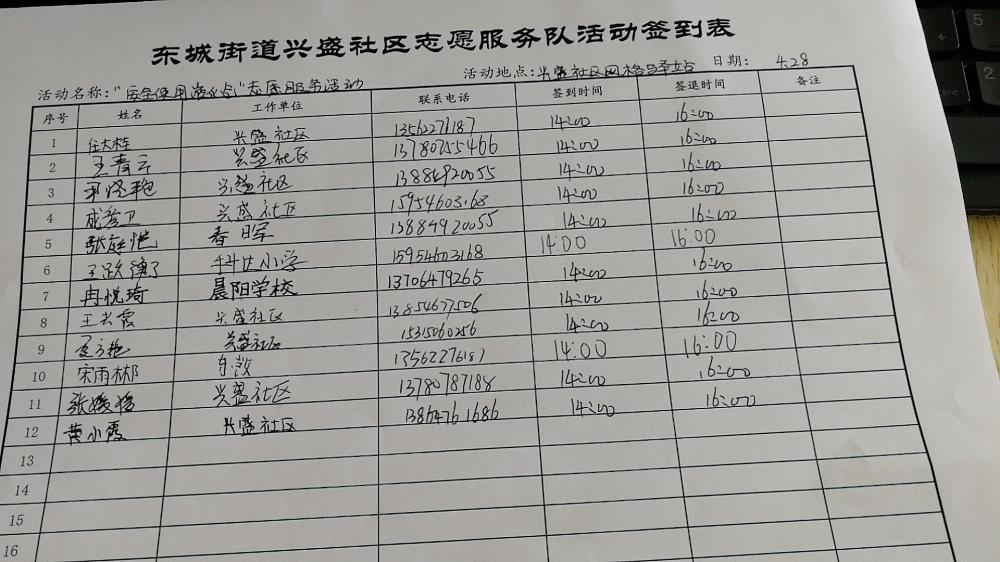 东城街道兴盛社区志愿服务队活动签到表
活动名称:"安全使用液化气"志愿服务活动 活动地点:兴盛社区网格驿站 日期: 4.28
序号 姓名 工作单位 联系电话 签到时间 签退时间 备注
1 任大桂 兴盛社区 1356227187 14:00 16:00
2 王青云 兴盛社区 13780755466 14:00 16:00
3 兴盛社区 13884920055 14:00 16:00
4 成彦卫 兴盛社区 15954603168 14:00 16:00
5 张庭恺 春晖 13884920055 14:00 16:00
6 科达小学 15954603168 14:00 16:00
7 冉悦琦 晨阳学校 13706479265 14:00 16:00
8 王长霞 兴盛社区 13854677506 14:00 16:00
9 兴盛社区 15315060256 14:00 16:00
10 宋雨彬 13562276187 14:00 16:00
11 兴盛社区 13780787188 14:00 16:00
12 黄小霞 兴盛社区 13864761686 14:00 16:00
13
14
15
16